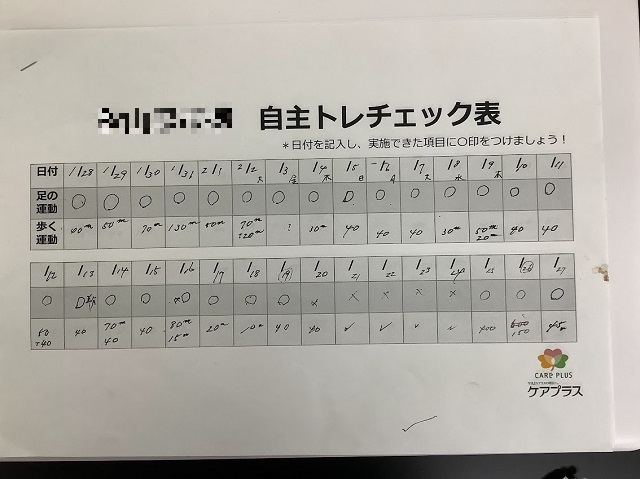 自主トレチェック表
*日付を記入し、実施できた項目に○印をつけましょう!
日付 1/28 1/29 1/30 1/31 2/1 2/2 1/3 1/4 木 1/5 1/6 1/7 1/8 水 1/9 木 1/10 1/11
足の運動 ○ ○ ○ ○ ○ ○ ○ ○ ○ ○ ○ ○ ○ ○
歩く運動 50m 70m 130m 70m 30m 40 40 40 30m 50m 20m 40
1/12 1/13 1/14 1/15 1/16 1/17 1/18 1/19 1/20 1/21 1/22 1/23 1/24 1/25 1/26 1/27
○ ○ ○ ○ ○ ○ ○ × × × × × ○ ○ ○
40 70m 40 40 80m 15m 20m 10m 40 40 ✓ ✓ ✓ ✓ 150
CARE PLUS
ケアプラス